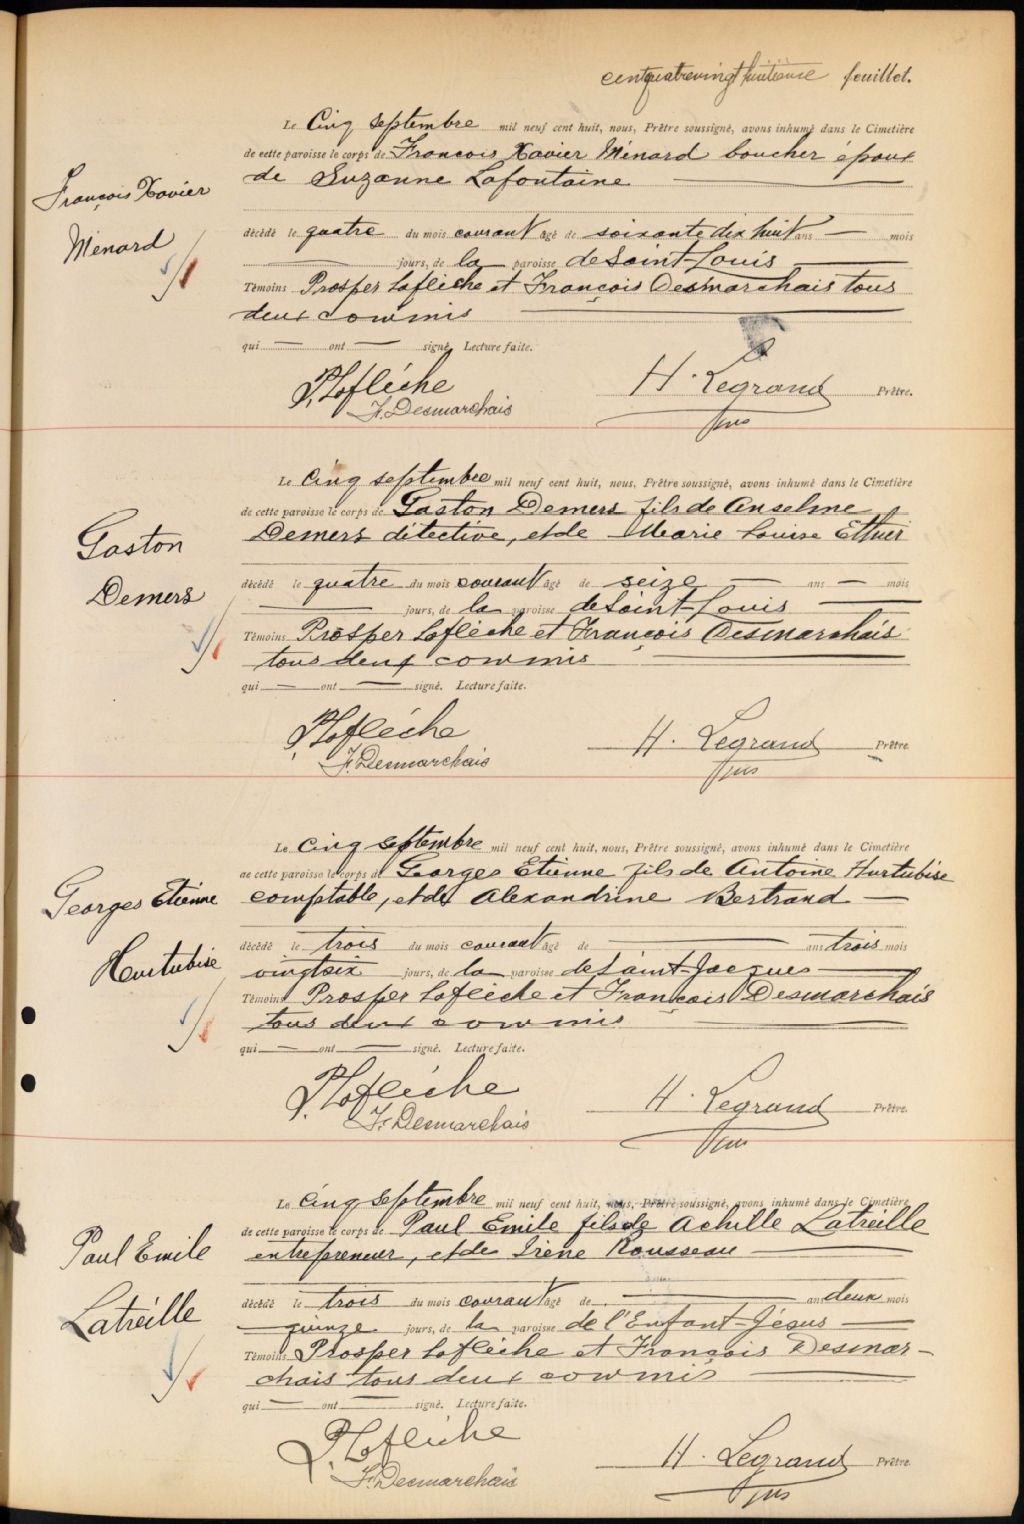 centquatrevingthuitième feuillet.
Le Cinq septembre mil neuf cent huit, nous, Prêtre soussigné, avons inhumé dans le Cimetière
de cette paroisse le corps de François Xavier Ménard boucher époux
de Suzanne Lafontaine
François Xavier
Ménard
décédé le quatre du mois courant âgé de soixante dix huit ans — mois
jours, de la paroisse de Saint-Louis
Témoins Prosper Laflèche et François Desmarchais tous
deux commis
qui — ont — signé. Lecture faite.
P. Laflèche H. Legrand Prêtre.
F. Desmarchais
Le Cinq septembre mil neuf cent huit, nous, Prêtre soussigné, avons inhumé dans le Cimetière
de cette paroisse le corps de Gaston Demers fils de Anselme
Demers détective, et de Marie Louise Ethier
Gaston
Demers
décédé le quatre du mois courant âgé de seize — ans — mois
jours, de la paroisse de Saint-Louis
Témoins Prosper Laflèche et François Desmarchais
tous deux commis
qui — ont — signé. Lecture faite.
P. Laflèche H. Legrand Prêtre.
F. Desmarchais
Le Cinq septembre mil neuf cent huit, nous, Prêtre soussigné, avons inhumé dans le Cimetière
de cette paroisse le corps de Georges Etienne fils de Antoine Hurtubise
comptable, et de Alexandrine Bertrand
Georges Etienne
Hurtubise
décédé le trois du mois courant âgé de — ans trois mois
vingtsix jours, de la paroisse de Saint-Jacques
Témoins Prosper Laflèche et François Desmarchais
tous deux commis
qui — ont — signé. Lecture faite.
P. Laflèche H. Legrand Prêtre.
F. Desmarchais
Le Cinq septembre mil neuf cent huit, nous, Prêtre soussigné, avons inhumé dans le Cimetière
de cette paroisse le corps de Paul Emile fils de Achille Latreille
entrepreneur, et de Irène Rousseau
Paul Emile
Latreille
décédé le trois du mois courant âgé de — ans deux mois
quinze jours, de la paroisse de l'Enfant-Jésus
Témoins Prosper Laflèche et François Desmar-
chais tous deux commis
qui — ont — signé. Lecture faite.
P. Laflèche H. Legrand Prêtre.
F. Desmarchais